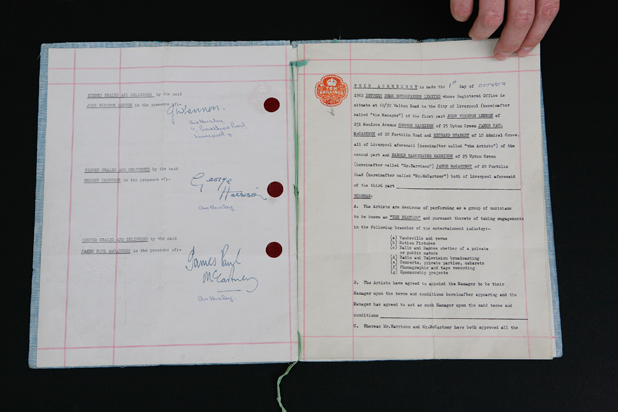 SIGNED SEALED AND DELIVERED by the said
JOHN WINSTON LENNON in the presence of:-
JWLennon.
SIGNED SEALED AND DELIVERED by the said
GEORGE HARRISON in the presence of:-
George
Harrison
SIGNED SEALED AND DELIVERED by the said
JAMES PAUL McCARTNEY in the presence of:-
James Paul
McCartney
TEN
SHILLINGS
THIS AGREEMENT is made the 1st day of October
1962 BETWEEN NEMS ENTERPRISES LIMITED whose Registered Office is
situate at Walton Road in the City of Liverpool (hereinafter
called "the Manager") of the first part JOHN WINSTON LENNON of
251 Menlove Avenue GEORGE HARRISON of 25 Upton Green JAMES PAUL
McCARTNEY of 20 Forthlin Road and RICHARD STARKEY of 10 Admiral Grove,
all of Liverpool aforesaid (hereinafter called "the Artists") of the
second part and HAROLD HARGREAVES HARRISON of 25 Upton Green
(hereinafter called "Mr.Harrison") JAMES McCARTNEY of 20 Forthlin
Road (hereinafter called "Mr.McCartney") both of Liverpool aforesaid
of the third part
WHEREAS:
A. The Artists are desirous of performing as a group of musicians
to be known as "THE BEATLES" and pursuant thereto of taking engagements
in the following branches of the entertainment industry:-
(a) Vaudeville and revue
(b) Motion Pictures
(c) Balls and Dances whether of a private
or public nature
(d) Radio and Television broadcasting
(e) Concerts, private parties, cabarets
(f) Phonographic and tape recording
(g) Sponsorship projects
B. The Artists have agreed to appoint the Manager to be their
Manager upon the terms and conditions hereinafter appearing and the
Manager has agreed to act as such Manager upon the said terms and
conditions
C. Whereas Mr.Harrison and Mr.McCartney have both approved all the